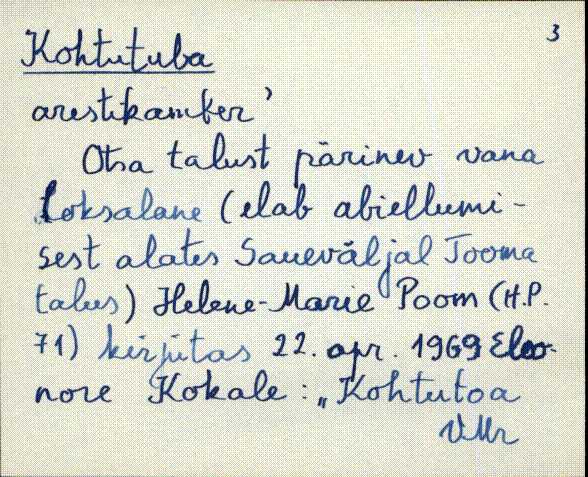 3
Kohtutuba
arestikamber'
Otsa talust pärinev vana
Loksalane (elab abiellumi-
sest alates Saueväljal Tooma
talus) Helene-Marie Poom (H.P.
71) kirjutas 22. apr. 1969 Eleo-
nore Kokale: „Kohtutoa
VMr